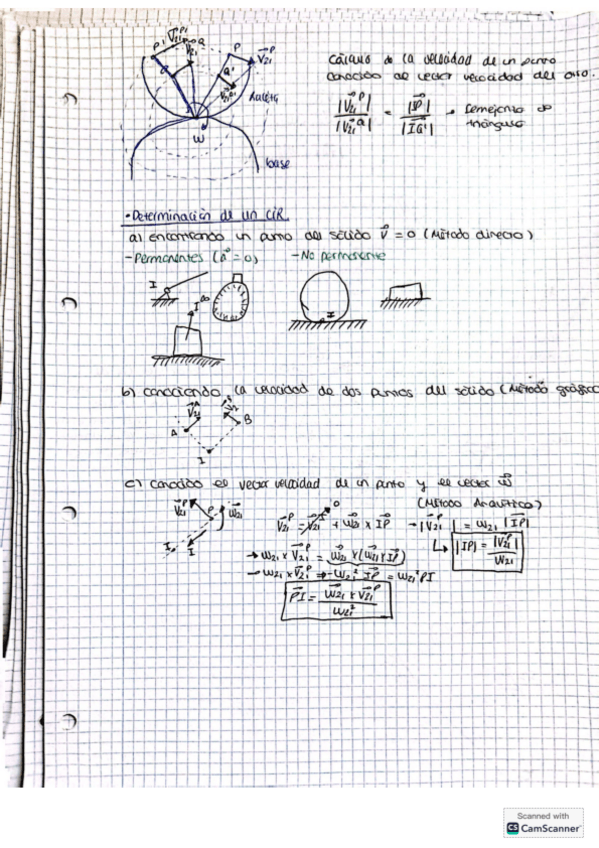 Cálculo de la velocidad de un punto
conocido el vector velocidad del otro.
|V₂₁ᴾ| / |V₂₁ᵠ| = |IP| / |IQ'| → Semejanza de triángulos
P' V₂₁ᴾ' Q V₂₁ P V₂₁ᴾ
Q' V₂₁ᵠ'
ruleta
ω
base
• Determinación de un CIR.
a) encontrando un punto del sólido V = 0 (Método directo)
- Permanentes (a = 0) - No permanente
I
I ∞
I
b) conociendo la velocidad de dos puntos del sólido (Método gráfico
V₂₁ᴬ V₂₁ᴮ
A B
I
c) conocido el vector velocidad de un punto y el vector ω
(Método Analítico)
V₂₁ᴾ P ω₂₁
I I
V₂₁ᴾ = V₂₁ᴵ + ω₂₁ x IP → |V₂₁ᴾ| = ω₂₁ |IP|
0
→ ω₂₁ x V₂₁ᴾ = ω₂₁ x (ω₂₁ x IP)
↳ |IP| = |V₂₁ᴾ| / ω₂₁
→ ω₂₁ x V₂₁ᴾ = -ω₂₁² IP = ω₂₁² PI
PI = ω₂₁ x V₂₁ᴾ / ω₂₁²
Scanned with
CS CamScanner